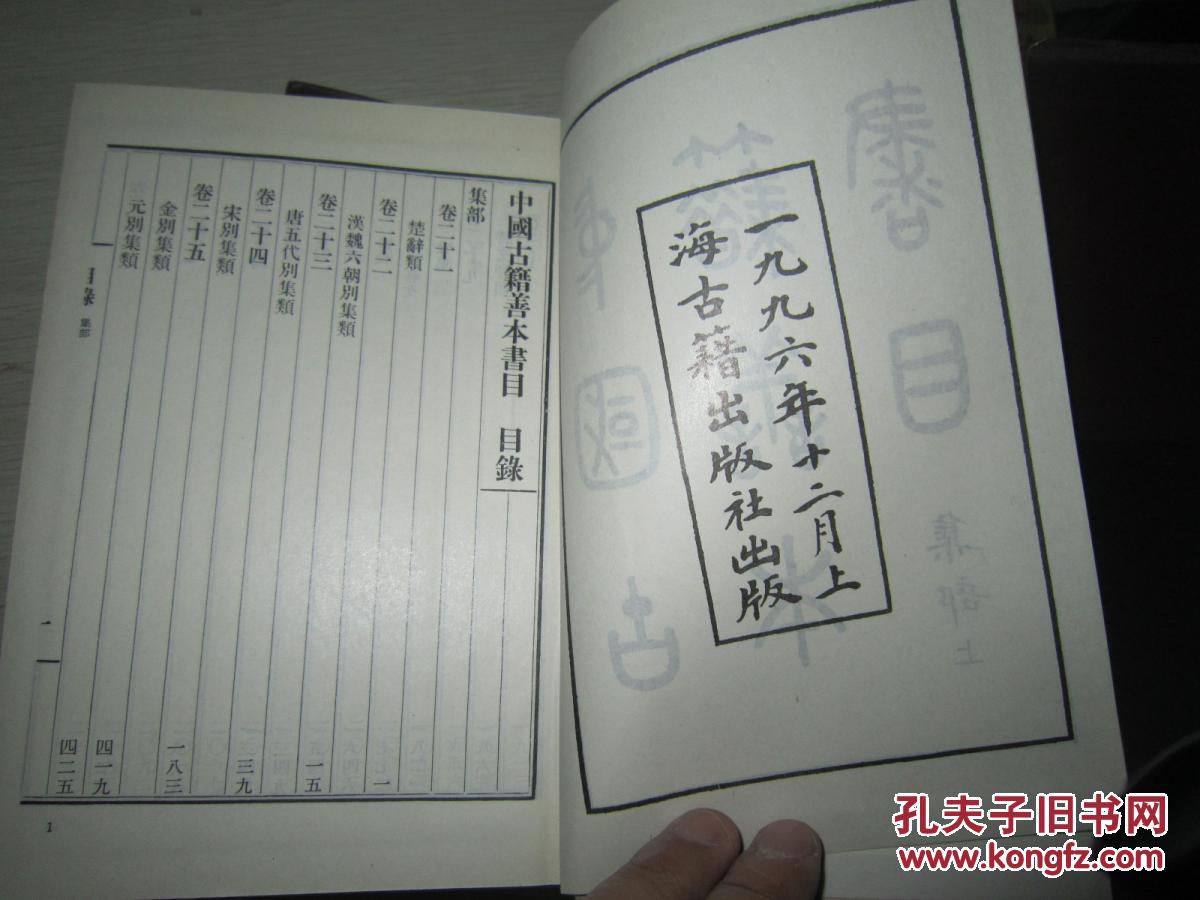 一九九六年十二月上
海古籍出版社出版
中國古籍善本書目 目錄
集部
卷二十一
楚辭類 一
卷二十二
漢魏六朝別集類 一五
卷二十三
唐五代別集類 三九
卷二十四
宋別集類 一八三
卷二十五
金別集類 四一九
元別集類 四二五
目錄 集部 一
1
孔夫子旧书网
www.kongfz.com